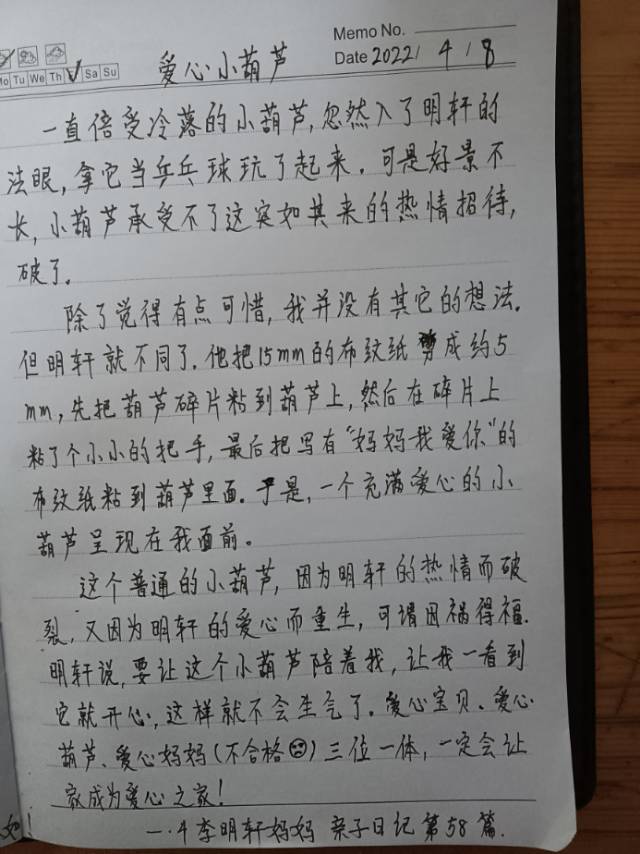 Memo No.
Mo Tu We Th Sa Su
Date 2022 / 4 / 8
爱心小葫芦
一直倍受冷落的小葫芦,忽然入了明轩的
法眼,拿它当乒乓球玩了起来.可是好景不
长,小葫芦承受不了这突如其来的热情招待,
破了.
除了觉得有点可惜,我并没有其它的想法.
但明轩就不同了.他把15mm的布纹纸剪成约5
mm,先把葫芦碎片粘到葫芦上,然后在碎片上
粘了个小小的把手,最后把写有“妈妈我爱你”的
布纹纸粘到葫芦里面.于是,一个充满爱心的小
葫芦呈现在我面前。
这个普通的小葫芦,因为明轩的热情而破
裂,又因为明轩的爱心而重生,可谓因祸得福.
明轩说,要让这个小葫芦陪着我,让我一看到
它就开心,这样就不会生气了.爱心宝贝、爱心
葫芦、爱心妈妈(不合格)三位一体,一定会让
家成为爱心之家!
一.4李明轩妈妈 亲子日记第58篇.